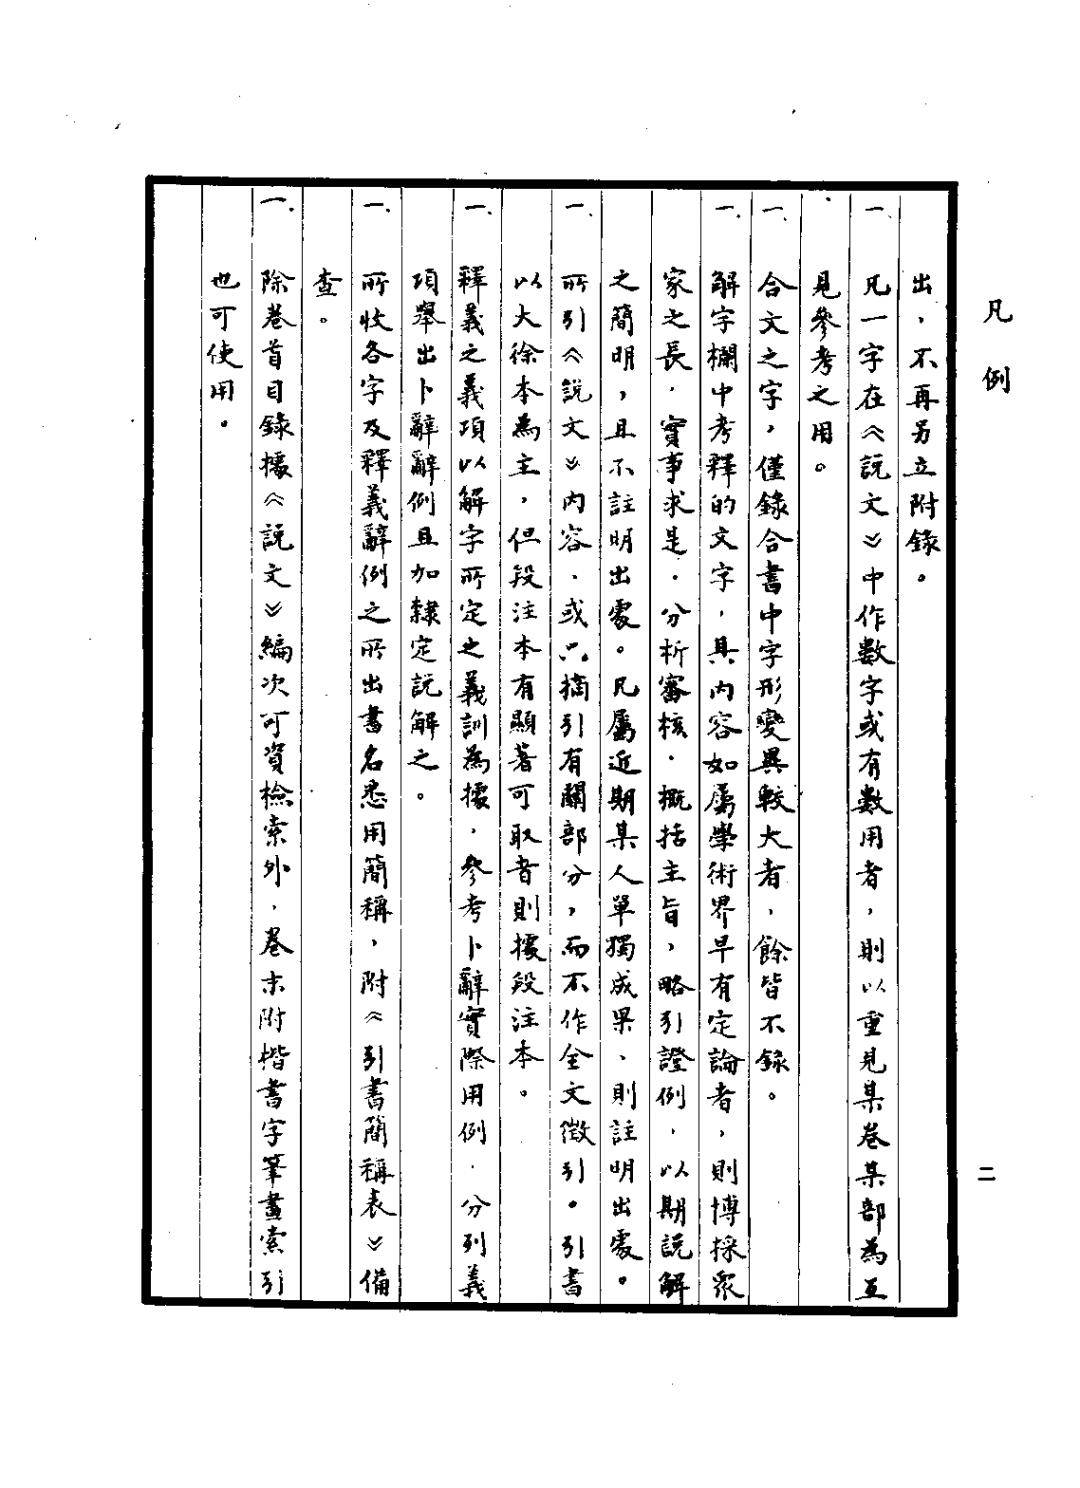 凡例
二
出，不再另立附錄。
一、凡一字在《說文》中作數字或有數用者，則以重見某卷某部為互
見參考之用。
一、合文之字，僅錄合書中字形變異較大者，餘皆不錄。
一、解字欄中考釋的文字，具內容如屬學術界早有定論者，則博採眾
家之長，實事求是，分析審核，概括主旨，略引證例，以期說解
之簡明，且不註明出處。凡屬近期某人單獨成果、則註明出處。
一、所引《說文》內容，或只摘引有關部分，而不作全文徵引。引書
以大徐本為主，但段注本有顯著可取者則據段注本。
一、釋義之義項以解字所定之義訓為據，參考卜辭實際用例，分列義
項舉出卜辭辭例且加隸定說解之。
一、所收各字及釋義辭例之所出書名悉用簡稱，附《引書簡稱表》備
查。
一、除卷首目錄據《說文》編次可資檢索外，卷末附楷書字筆畫索引
也可使用。